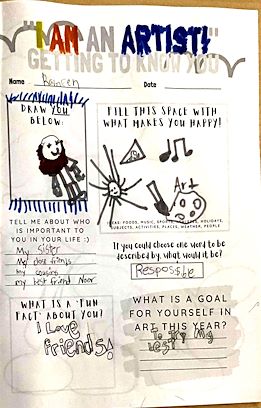 "I AM AN ARTIST!"
GETTING TO KNOW YOU
Name Date
DRAW YOU
BELOW:
FILL THIS SPACE WITH
WHAT MAKES YOU HAPPY!
Art
IDEAS: FOODS, MUSIC, SPORTS, HOLIDAYS,
SUBJECTS, ACTIVITIES, PLACES, WEATHER, PEOPLE
TELL ME ABOUT WHO
IS IMPORTANT TO
YOU IN YOUR LIFE :)
My sister
My close friends
my cousins
my best friend Noor
If you could choose one word to be
described by, what would it be?
Respossible
WHAT IS A "FUN
FACT" ABOUT YOU?
I Love
friends!
WHAT IS A GOAL
FOR YOURSELF IN
ART THIS YEAR?
to try My
best!